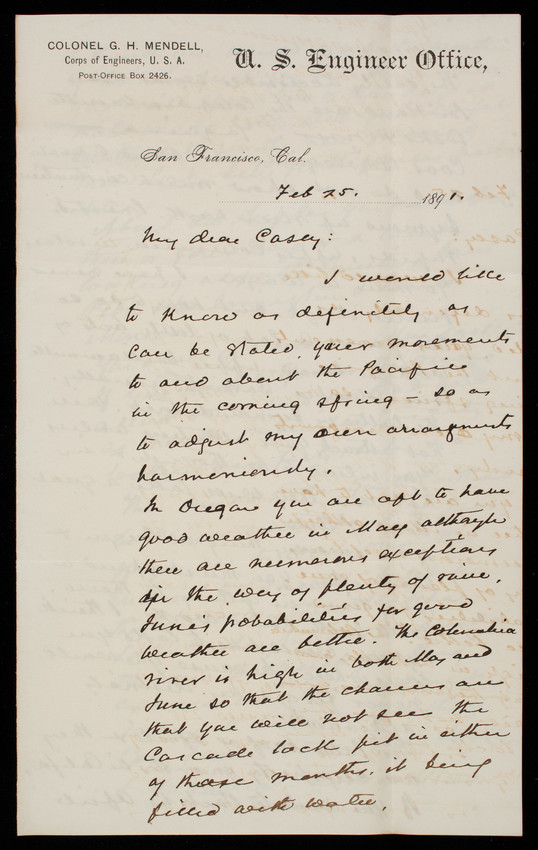 COLONEL G. H. MENDELL,
Corps of Engineers, U. S. A.
POST-OFFICE BOX 2426.
U. S. Engineer Office,
San Francisco, Cal.
Feb 25. 1891.
My dear Casey:
I would like
to know as definitely as
can be stated, your movements
to and about the Pacific
in the coming spring - so as
to adjust my own arrangements
harmoniously.
In Oregon you are apt to have
good weather in May although
there are numerous exceptions
in the way of plenty of rain.
June's probabilities for good
weather are better. The Columbia
river is high in both May and
June so that the chances are
that you will not see the
Cascade lock pit in either
of these months. it being
filled with water.